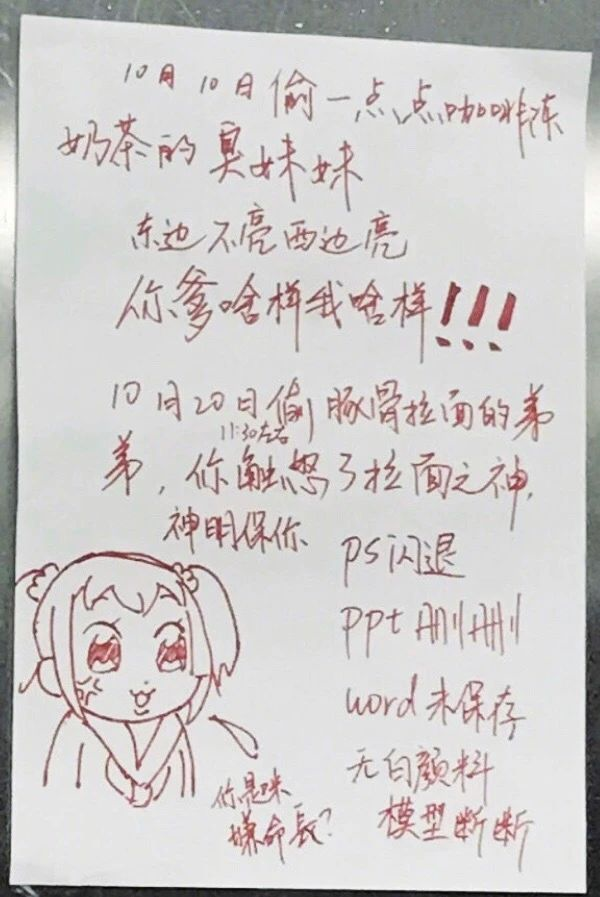 10月10日偷一点点咖啡冻
奶茶的臭妹妹
东边不亮西边亮
你爹啥样我啥样!!!
10月20日偷豚骨拉面的弟
11:30左右
弟，你触怒了拉面之神，
神明保你
ps闪退
ppt删删
word未保存
无白颜料
模型断断
你是咪
嫌命長?